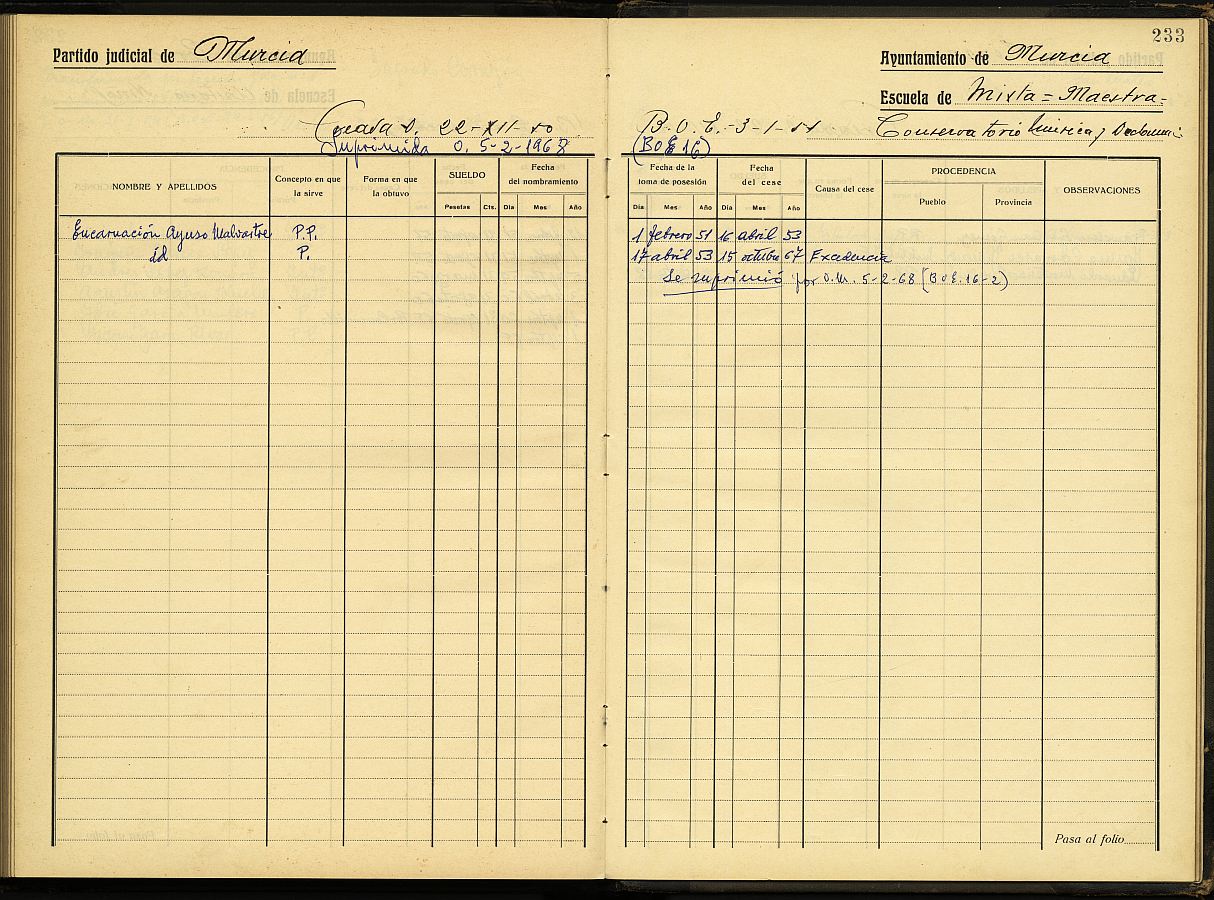 233
Partido judicial de Murcia
Ayuntamiento de Murcia
Escuela de Mixta = Maestra =
Creada O. 22-XII-50 B.O.E.-3-1-51 Conservatorio Música y Declamac.
Suprimida O. 5-2-1968 (BOE 16)
NOMBRE Y APELLIDOS
Concepto en que la sirve
Forma en que la obtuvo
SUELDO
Pesetas Cts.
Fecha del nombramiento
Día Mes Año
Fecha de la toma de posesión
Día Mes Año
Fecha del cese
Día Mes Año
Causa del cese
PROCEDENCIA
Pueblo Provincia
OBSERVACIONES
Encarnación Ayuso P.P. 1 febrero 51 16 abril 53
id P. 17 abril 53 15 octubre 67 Excedencia
Se suprimió por O.M. 5-2-68 (BOE. 16-2)
Pasa al folio